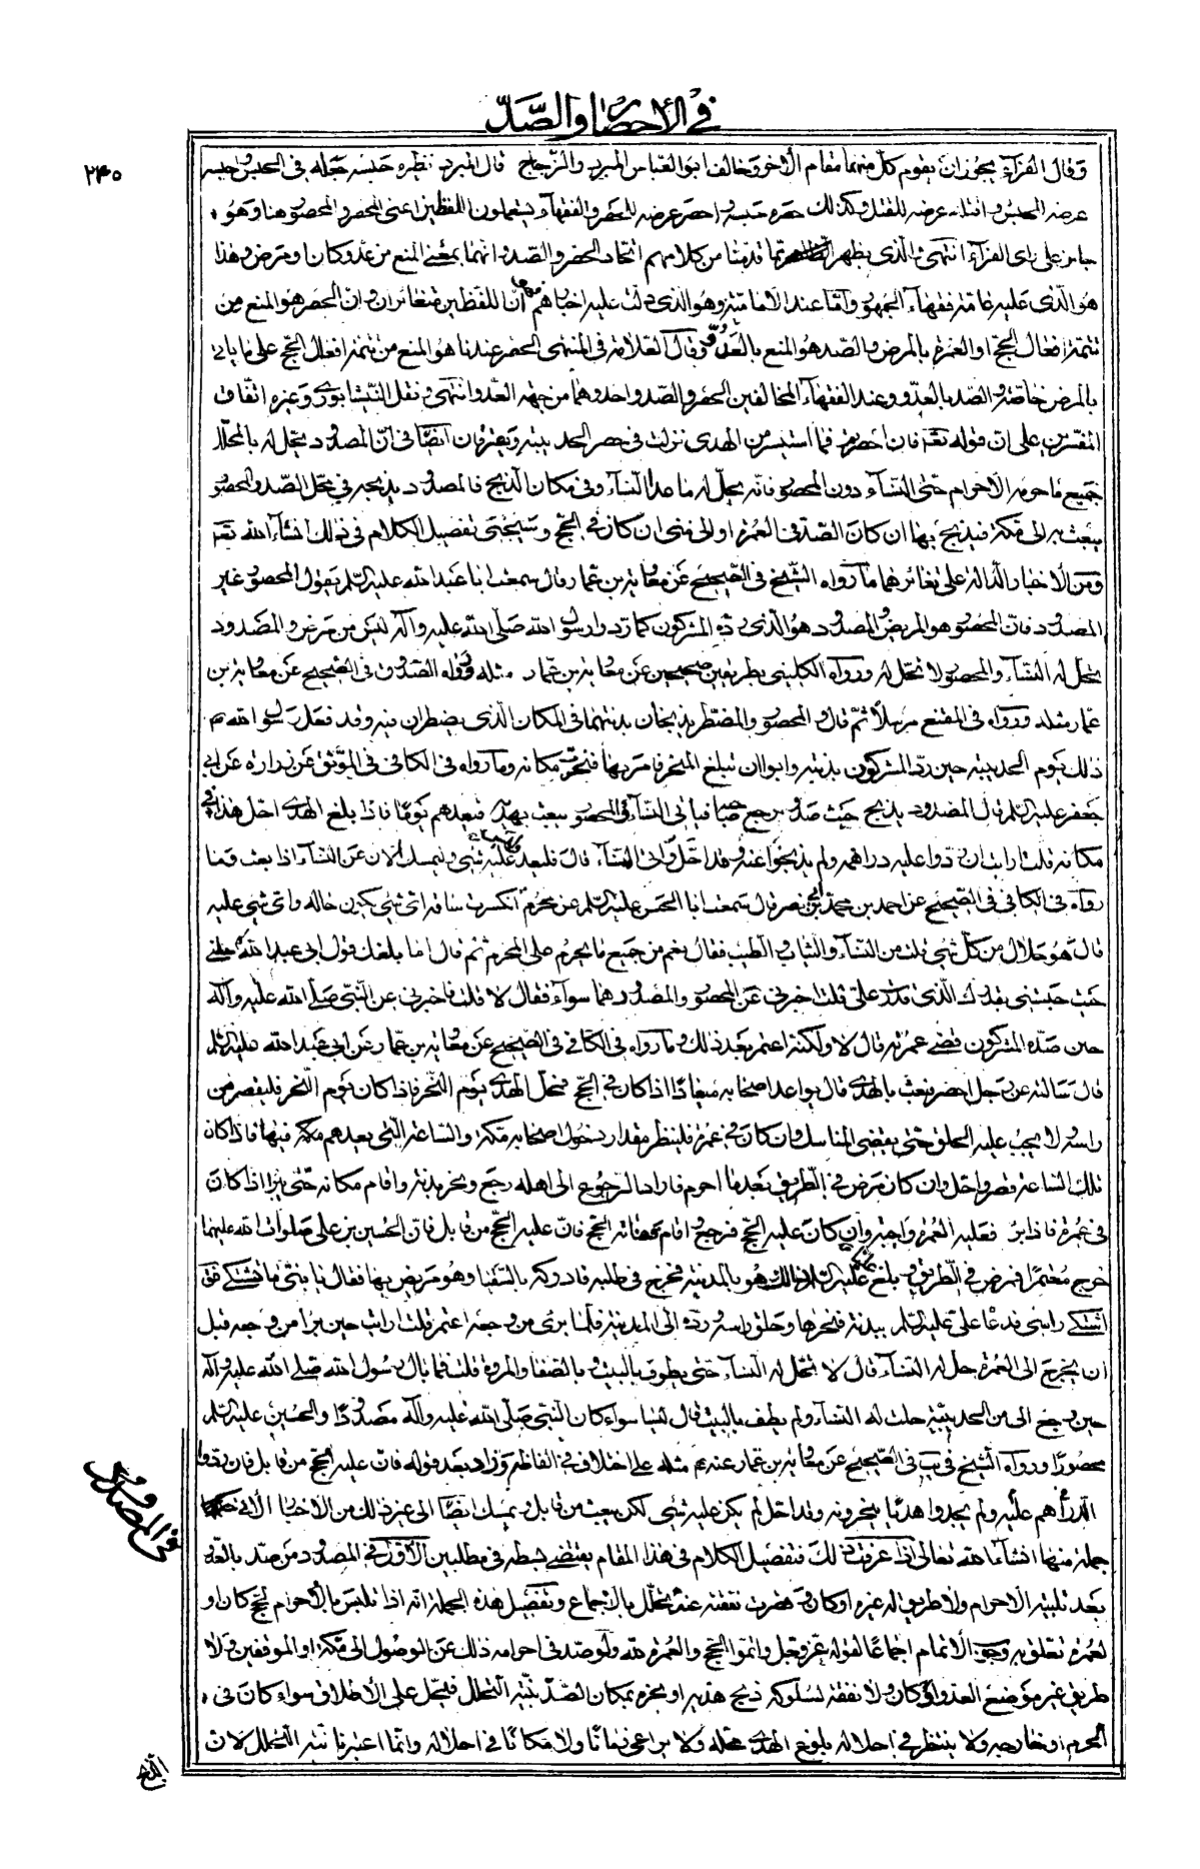 في الأحصار والصّدّ
٢٤٠
وقال الفرّاء يجوز ان يقوم كلّ منهما مقام الأخر وخالف ابو العباس المبرد والزّجاج قال المبرد نظيره حبسه جعله في الحبس واحبسه
عرضه للحبس واقتله عرضه للقتل وكذلك حصره حبسه واحصره عرضه للحصر والفقهاء يستعملون اللفظين اعنى المحصر والمحصور هنا وهو
جايز على راى الفرّاء انتهى والّذى يظهر مما قدمنا من كلامهم اتحاد الحصر والصّد وانهما بمعنى المنع من عدو كان او مرض وهذا
هو الّذى عليه عامّة فقهاء الجمهور وامّا عند الأماميّة وهو الذى دلّت عليه اخبارهم انّ اللفظين متغايران وان الحصر هو المنع من
تتمّة افعال الحجّ او العمرة بالمرض والصّد هو المنع بالعدوّ وقال العلامة في المنتهى الحصر عندنا هو المنع من تتمّة افعال الحجّ على ما ياتى
بالمرض خاصّة والصّد بالعدّو وعند الفقهاء المخالفين الحصر والصّد واحد وهما من جهة العدّو انتهى ونقل النّيشابورى وغيره اتّفاق
المفسّرين على ان قوله تعالى فان احصرتم فما استيسر من الهدى نزلت في حصر الحديبية ويفترقان ايضًا في انّ المصدود يحلّ له بالمحلّل
جميع ما حرّمه الأحرام حتى النّساء دون المحصور فانّه يحلّ له ما عدا النّساء وفي مكان الذّبح فالمصدود يذبحه في محلّ الصّد والمحصور
يبعث به الى مكّة فيذبح بها ان كان الصّد في العمرة او الى منى ان كان في الحجّ وسيجئ تفصيل الكلام في ذلك انشاء الله تعالى
ومن الأخبار الدّالة على تغايرهما ما رواه الشّيخ في الصّحيح عن معوية بن عمار قال سمعت ابا عبد الله عليه السّلم يقول المحصور غير
المصدود فان المحصور هو المريض والمصدود هو الّذى ردّه المشركون كما ردّوا رسول الله صلّى الله عليه وآله ليس من مرض والمصدود
يحلّ له النّساء والمحصور لا تحلّ له ورواه الكلينى بطريقين صحيحين عن معوية بن عمّار مثله ورواه الصّدوق في الصّحيح عن معوية بن
عمار مثله ورواه في المقنع مرسلًا ثمّ قال والمحصور والمضطر يذبحان بدنتهما في المكان الّذى يضطران فيه وقد فعل رسول الله ص
ذلك يوم الحديبية حين ردّ المشركون بدنته وابوا ان تبلغ المنحر فامر بها فنحرت مكانه وما رواه في الكافي في الموثّق عن زرارة عن ابى
جعفر عليه السّلم قال المصدود يذبح حيث صدّ ويرجع صاحبه فياتى النّساء والمحصور يبعث بهديه فيعدهم يومًا فاذا بلغ الهدى احلّ هذا في
مكانه قلت ارايت ان ردّوا عليه دراهمه ولم يذبحوا عنه وقد احلّ واتى النّساء قال فليعد وليس عليه شئ وليمسك الأن عن النّساء اذا بعث وما
رواه في الكافي في الصّحيح عن احمد بن محمّد بن ابى نصر قال سمعت ابا الحسن عليه السّلم عن محرم انكسرت ساقه اىّ شئ يكون حاله واىّ شئ عليه
قال هو حلال من كلّ شئ قلت من النّساء والثياب والطّيب فقال نعم من جميع ما يحرم على المحرم ثمّ قال اما بلغك قول ابى عبد الله حلّنى
حيث حبستنى بقدرك الّذى قدرت علىّ قلت اخبرنى عن المحصور والمصدود هما سواء فقال لا قلت فاخبرنى عن النّبى صلّى الله عليه وآله
حين صدّه المشركون قضى عمرته قال لا ولكنّه اعتمر بعد ذلك وما رواه في الكافي في الصّحيح عن معوية بن عمّار عن ابى عبد الله عليه السّلم
قال سالته عن رجل احصر فبعث بالهدى قال يواعد اصحابه ميعادًا اذا كان في الحجّ فمحلّ الهدى يوم النّحر فاذا كان يوم النّحر فليقصر من
راسه ولا يجب عليه الحلق حتى يقضى المناسك وان كان في عمرة فلينظر مقدار دخول اصحابه مكّة والسّاعة الّتى يعدهم فيها فاذا كان
تلك السّاعة قصر واحلّ وان كان مرض في الطّريق بعد ما احرم فاراد الرّجوع الى اهله رجع ونحر بدنة واقام مكانه حتى يبرأ اذا كان
في عمرة فاذا برّ فعليه العمرة واجبة وان كان عليه الحجّ فرجع او اقام ففاته الحجّ فانّ عليه الحجّ من قابل فان الحسين بن علي صلوات الله عليهما
خرج معتمرًا فمرض في الطّريق وبلغ عليًّا عليه السّلم ذلك وهو بالمدينة فخرج في طلبه فادركه بالسّقيا وهو مريض بها فقال يا بنىّ ما تشتكى فقال
اشتكى راسى فدعا علىّ عليه السّلم ببدنة فنحرها وحلق راسه وردّه الى المدينة فلمّا برئ من وجعه اعتمر قلت ارايت حين برأ من وجعه قبل
ان يخرج الى العمرة حل له النّساء قال لا تحلّ له النّساء حتى يطوف بالبيت وبالصّفا والمروة قلت فما بال رسول الله صلى الله عليه وآله
حين رجع الى من الحديبيّة حلت له النّساء ولم يطف بالبيت قال ليسا سواء كان النّبى صلّى الله عليه وآله مصدودًا والحسين عليه السّلم
محصورًا ورواه الشّيخ في يب في الصّحيح عن معوية بن عمار عنه ع مثله على اختلاف في الفاظه وزاد بعد قوله فان عليه الحجّ من قابل فان ردّوا
الدّراهم عليه ولم يجدوا هديًا ينحرونه وقد احل لم يكن عليه شئ لكن يبعث من قابل ويمسك ايضًا الى غير ذلك من الأخبار الأتى
جملة منها انشاء الله تعالى اذا عرفت ذلك فتفصيل الكلام في هذا المقام يقتضى بسطه في مطلبين الأوّل في المصدود من صدّ بالعدّو
بعد تلبّسه الأحرام ولا طريق له غيره او كان وقصرت نفقته عنه تحلّل بالأجماع وتفصيل هذه الجملة انّه اذا تلبس بالأحرام لحجّ كان او
لعمرة تعلق به وجوب الأتمام اجماعًا لقوله عزّ وجل واتموا الحجّ والعمرة لله ولو صدّ في احرامه ذلك عن الوصول الى مكّة او الموقفين ولا
طريق غير موضع العدوّ او كان ولا نفقة لسلوكه ذبح هديه او نحره بمكان الصّد بنيّة التّحلل فيحلّ على الأطلاق سواء كان في
الحرم او خارجه ولا ينتظر في احلاله بلوغ الهدى محلّه ولا يراعى زمانًا ولا مكانًا في احلاله وانّما اعتبرنا نيّة التّحلل لان
في المصدود